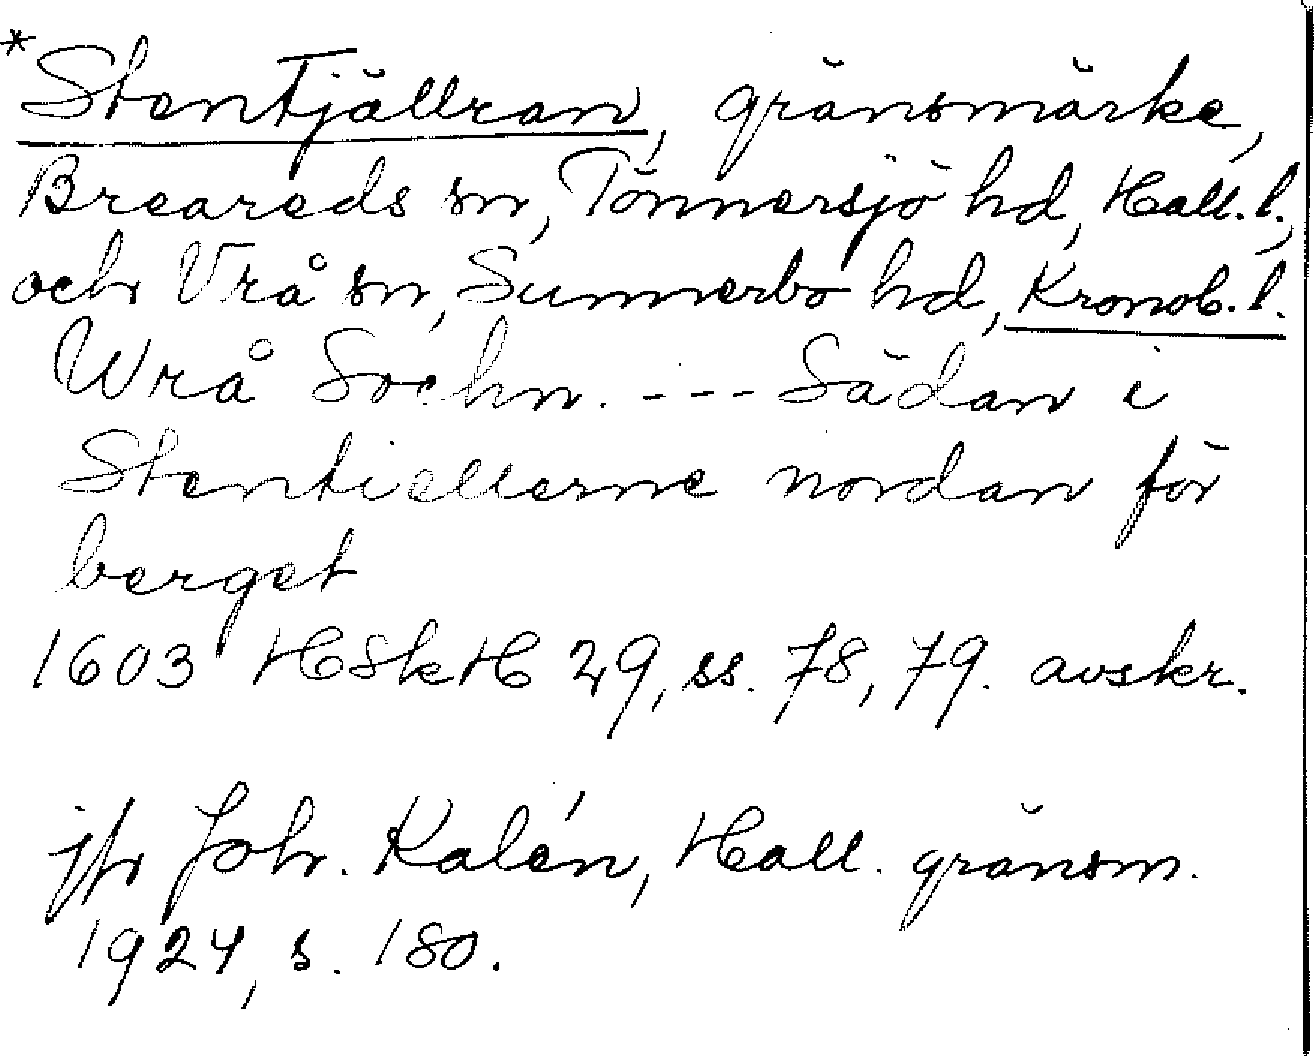 *Stentjällran, gränsmärke,
Breareds sn, Tönnersjö hd, Hall. l.,
och Vrå sn, Sunnerbo hd, Kronob. l.
Wrå Sochn. --- Sädan i
Stentiellerne nordan för
berget
1603 HSkH 29, ss. 78, 79. avskr.
jfr Joh. Kalén, Hall. gränsm.
1924, s. 180.